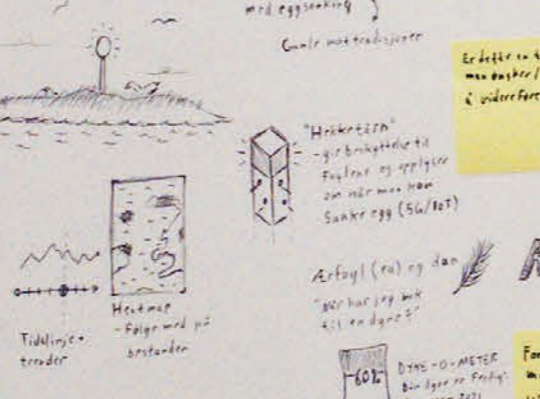 med eggsanking
Gamle mattradisjoner
Er dette en
man ønsker
å videreføre
"Hekketårn"
- gir beskyttelse til
fuglene og opplyser
om når man kan
Sanke egg (5G/IoT)
Ærfugl (ea) og dun
"Når har jeg nok
til en dyne?"
Heatmap
- Følge med på
bestander
Tidslinje +
trender
60%
DYNE-O-METER
Din dyne er ferdig:
2021
For